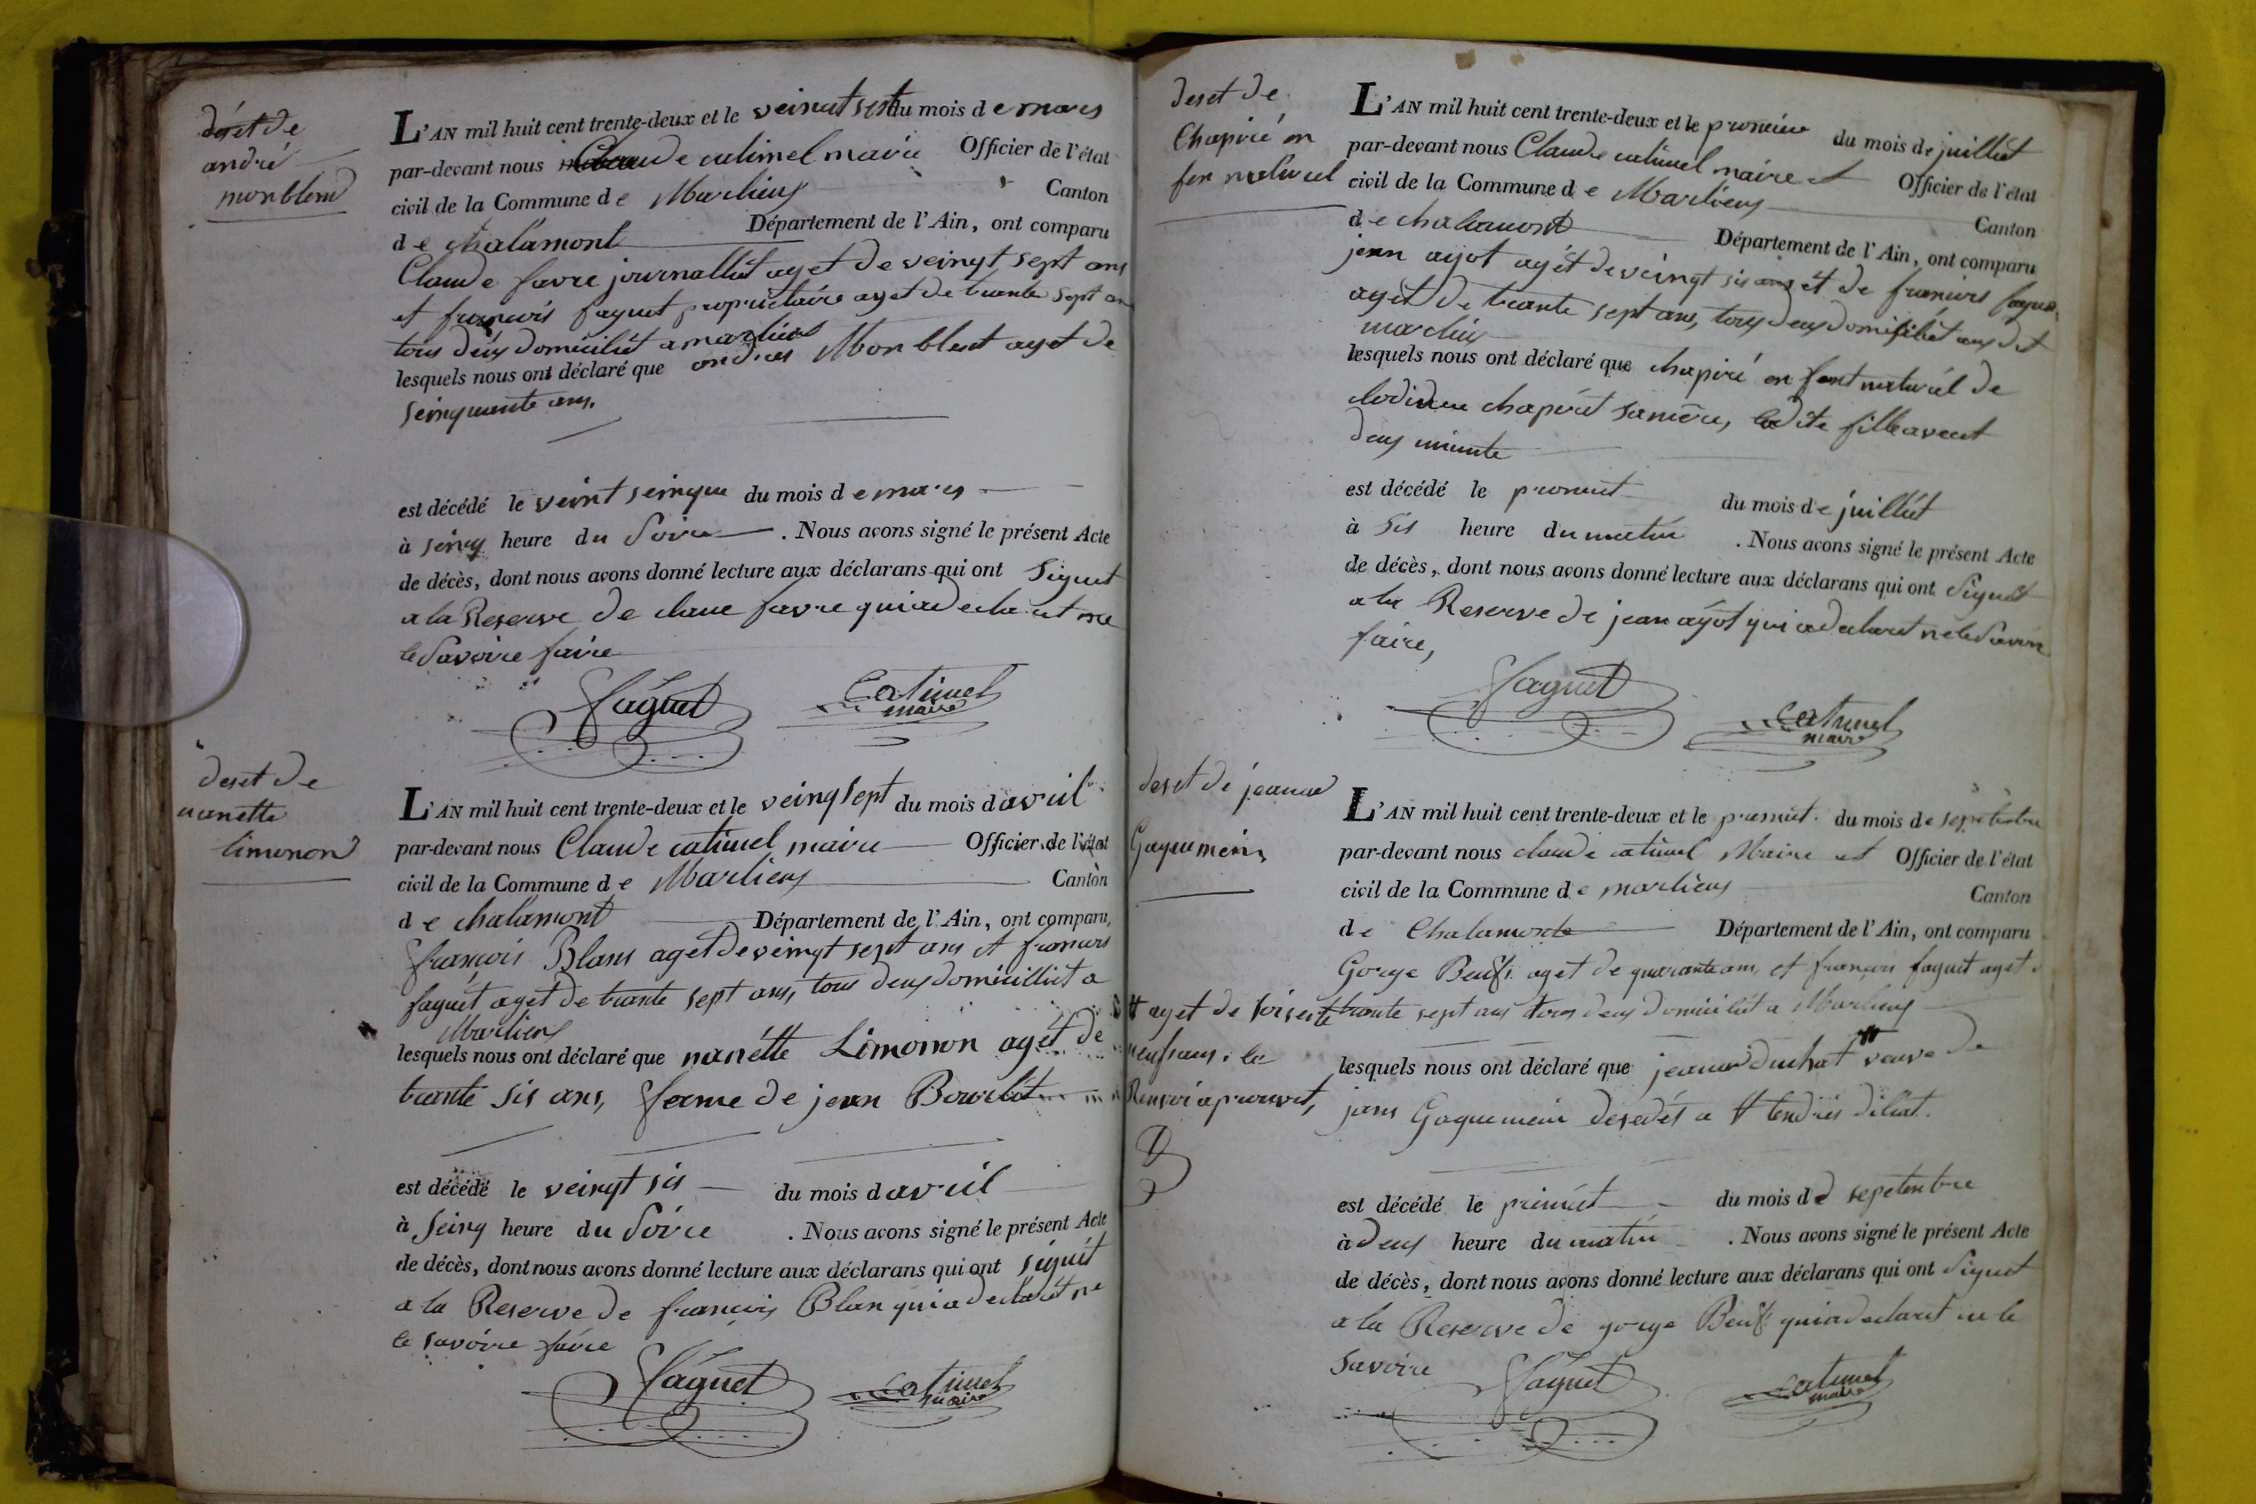 déset de
andré
monblond
L'AN mil huit cent trente-deux et le veinct sist du mois de mars
par-devant nous Claude catimel maire Officier de l'état
civil de la Commune de Marlieux Canton
de chalamont Département de l'Ain, ont comparu
Claude favre journallist ayet de veingt sept ans
et francois faguet propriètaire ayet de trante sept an
tous deux domicilièt a marlieux
lesquels nous ont déclaré que andres Mon blent ayet de
seinquante ans.
est décédé le veint seinque du mois de mars
à seinq heure du Soire . Nous avons signé le présent Acte
de décès, dont nous avons donné lecture aux déclarans qui ont Signet
a la Reserve de claue favre qui a declaret ne
le Savoire faire
Faguet Catimel
maire
deset de
nanette
limonon
L'AN mil huit cent trente-deux et le veinq sept du mois d avril
par-devant nous Claude catimel maire Officier de l'état
civil de la Commune de Marlieux Canton
de chalamont Département de l'Ain, ont comparu,
françois Blans aget de veingt sept ans et francois
faguet aget de trante sept ans, tous deux domicilliet a
Marlieux
lesquels nous ont déclaré que nanétte Limonon aget de
trante sis ans, feme de jean Bourlot
est décédé le veingt sis du mois d avril
à Seinq heure du Soire . Nous avons signé le présent Acte
de décès, dont nous avons donné lecture aux déclarans qui ont signét
a la Reserve de francois Blan qui a declarét ne
le savoire faire
Faguet Catimel
maire
deset de
Chapiré en
fen naturel
L'AN mil huit cent trente-deux et le premier du mois de juillet
par-devant nous Claude catimel maire et Officier de l'état
civil de la Commune de Marlieux Canton
de chalamont Département de l'Ain, ont comparu
jean ayot ayét de veingt sis ans et de francois faguet
ayét de trante sept ans, tous deux domicilièt audit
marlieux
lesquels nous ont déclaré que chapiré en fent naturél de
clodine chapirét sa mère, ledite fille avent
deux minute
est décédé le premiet du mois de juillét
à sis heure du matin . Nous avons signé le présent Acte
de décès, dont nous avons donné lecture aux déclarans qui ont Signet
a la Reserve de jean ayot qui a declaret ne le Savoir
faire,
Faguet Catimel
maire
deset de jeanne
Gaguemein
L'AN mil huit cent trente-deux et le premiet du mois de sepetenbre
par-devant nous claude catimel Maire et Officier de l'état
civil de la Commune de marlieux Canton
de Chalamonte Département de l'Ain, ont comparu
Gorge Beuf aget de quarante ans, et françois faguet aget d
trante sept ans tous deux domicilièt a Marlieux
# ayet de soisente
neuf ans. le
Renvoi aprouvet,
lesquels nous ont déclaré que jeanne duchat # veuve de
jans Gaguemein desedés a
est décédé le primiét du mois de sepetenbre
à deux heure du matin . Nous avons signé le présent Acte
de décès, dont nous avons donné lecture aux déclarans qui ont Signet
a la Reserve de gorge Beuf qui a declaret ne le
savoire
Faguet Catimel
maire